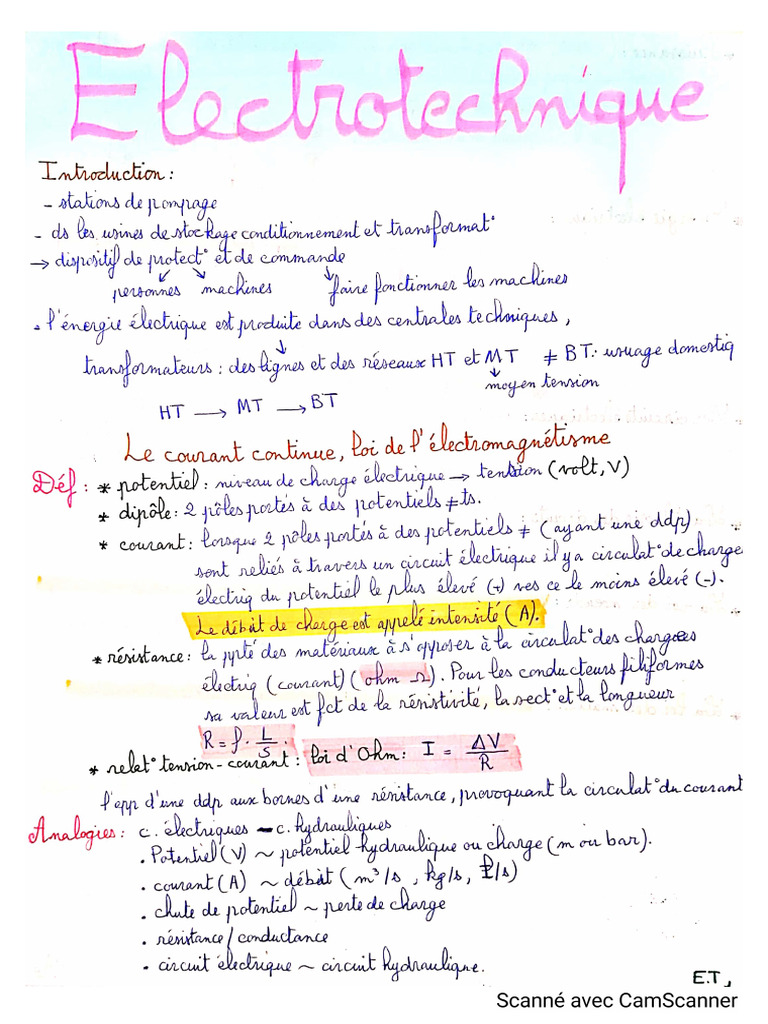 Electrotechnique
Introduction :
- stations de pompage
- ds les usines de stockage conditionnement et transformat°
→ dispositif de protect° et de commande
personnes machines faire fonctionner les machines
• l'énergie électrique est produite dans des centrales techniques,
transformateurs : des lignes et des réseaux HT et MT ≠ BT. usuage domestiq
moyen tension
HT → MT → BT
Le courant continue, loi de l'électromagnétisme
Déf : * potentiel : niveau de charge électrique → tension (volt, V)
* dipôle : 2 pôles portés à des potentiels ≠ts.
* courant : lorsque 2 pôles portés à des potentiels ≠ (ayant une ddp)
sont reliés à travers un circuit électrique il y a circulat° de charge
électriq du potentiel le plus élevé (+) ves ce le moins élevé (-).
Le débit de charge est appelé intensité (A).
* résistance : la pyté des matériaux à s'opposer à la circulat° des charges
électriq (courant) (ohm Ω). Pour les conducteurs filiformes
sa valeur est fct de la résistivité, la sect° et la longueur
R = ρ. L/S
* relat° tension-courant : loi d'Ohm : I = ΔV/R
l'app d'une ddp aux bornes d'une résistance, provoquant la circulat° du courant
Analogies : c. électriques - c. hydrauliques
• Potentiel (V) ~ potentiel hydraulique ou charge (m ou bar).
• courant (A) ~ débit (m³/s , kg/s, l/s)
• chute de potentiel ~ perte de charge
• résistance / conductance
• circuit électrique ~ circuit hydraulique.
E.T
Scanné avec CamScanner